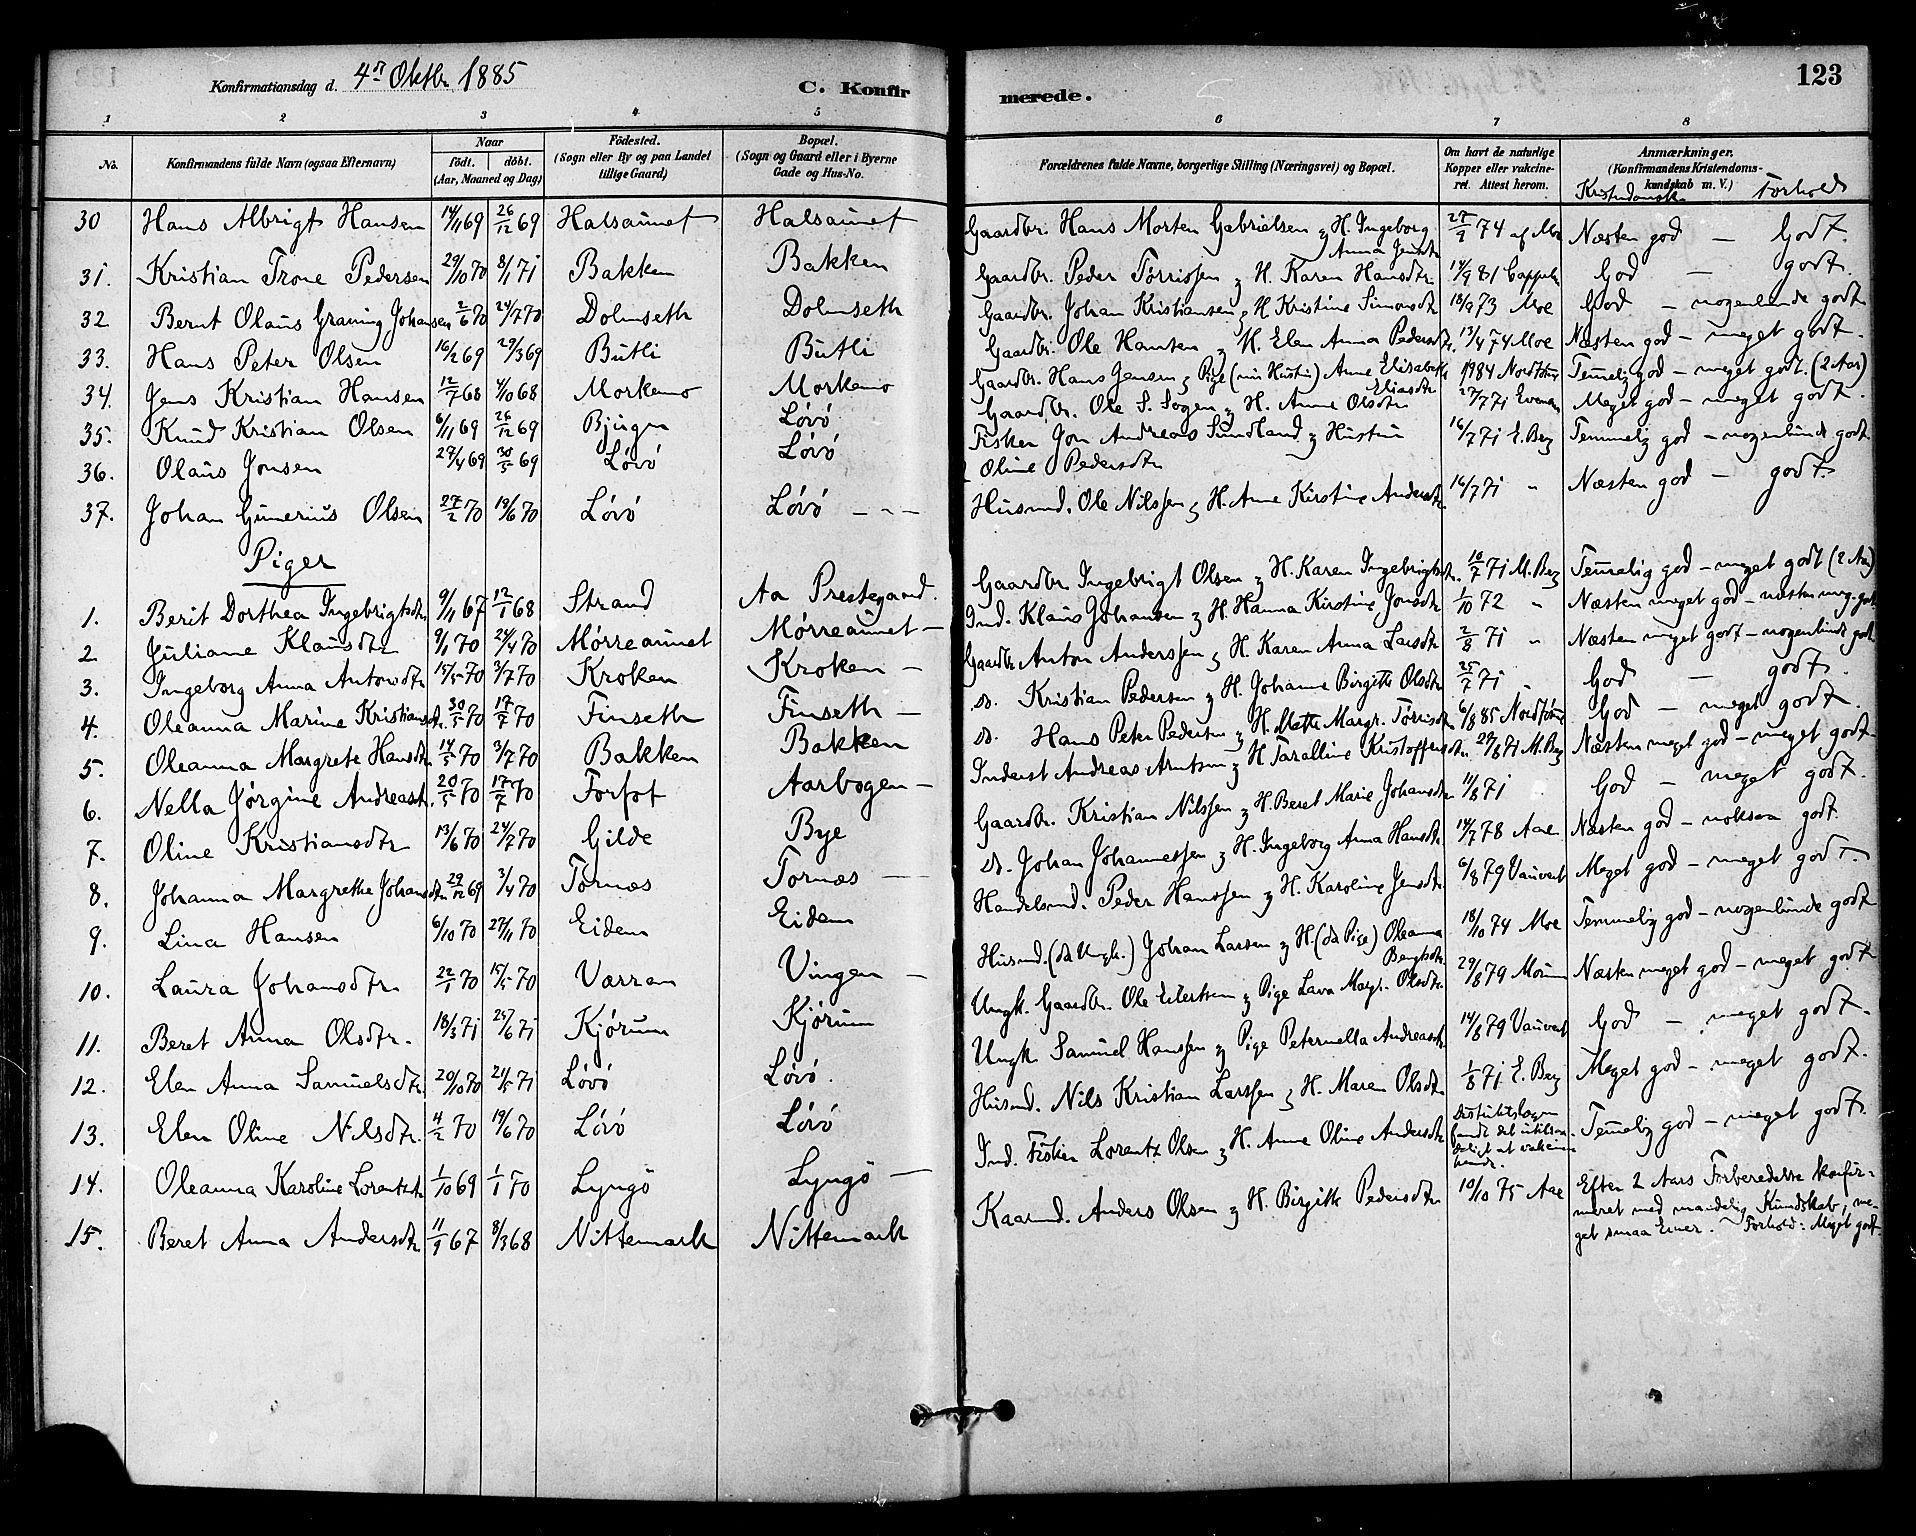 123
Konfirmationsdag d. 4de Oktbr. 1885
C. Konfirmerede.
1 2 3 4 5 6 7 8
No. Konfirmandens fulde Navn (ogsaa Efternavn) Naar født. døbt. (Aar, Maaned og Dag) Fødested. (Sogn eller By og paa Landet tillige Gaard) Bopæl. (Sogn og Gaard eller i Byerne Gade og Hus-No. Forældrenes fulde Navne, borgerlige Stilling (Næringsvei) og Bopæl. Om havt de naturlige Kopper eller vakcineret. Attest herom. Anmærkninger. (Konfirmandens Kristendomskundskab m. V.) Kristendomsk. Forhold
30 Hans Albrigt Hansen 14/11 69 26/12 69 Halsaunet Halsaunet Gaardbr. Hans Morten Gabrielsen & H. Ingeborg Anna Jensdtr 27/9 74 af Moe Næsten god — Godt.
31. Kristian Trone Pedersen 29/10 70 8/1 71 Bakken Bakken Gaardbr. Peder Tørrissen & H. Karen Hansdtr 14/9 81 Cappeln God — godt.
32 Bernt Olaus Graning Johansen 2/6 70 24/7 70 Dolmseth Dolmseth Gaardbr. Johan Kristiansen & H. Kristine Simonsdtr 18/9 73 Moe God — nogenlunde godt
33. Hans Peter Olsen 16/2 69 29/3 69 Butli Butli Gaardbr. Ole Hansen & H. Elen Anna Pedersdtr. 13/4 74 Moe Næsten god — meget godt.
34. Jens Kristian Hansen 12/7 68 4/10 68 Morkemo Morkemo Gaardbr. Hans Jensen & Pige (nu Hustru) Anne Elisabeth Eliasdtr 19/9 84 Temmelig god — meget godt. (2 Aar)
35. Knud Kristian Olsen 6/11 69 26/12 69 Bjugn Løvø Gaardbr. Ole S. Sogen & H. Anne Olsdtr 27/7 71 Meget god — meget godt.
36. Olaus Jonsen 27/4 69 30/5 69 Løvø Løvø Fisker Jon Andreas Sundland & Hustru Oline Pedersdtr 16/7 71 E. Berg Temmelig god — nogenlunde godt
37. Johan Gunerius Olsen 27/2 70 19/6 70 Løvø Løvø — Husmd. Ole Nilssen & H. Anne Kirstine Andersdtr. 16/7 71 " Næsten god — godt.
Piger
1. Berit Dorthea Ingebrigtsdtr 9/11 67 12/1 68 Strand Aa Prestegaard. Gaardbr Ingebrigt Olsen & H. Karen Ingebrigtsdtr. 10/7 71 M. Berg Temmelig god — meget godt (2 Aar)
2. Juliane Klausdtr 9/1 70 24/4 70 Mørreaunet Mørreaunet — Ind. Klaus Johansen & H. Hanna Kirstine Jonsdtr 1/10 72 " Næsten meget god — næsten meg. godt
3. Ingeborg Anna Antonsdtr 15/5 70 3/7 70 Kroken Kroken — Gaardbr Anton Anderssen & H. Karen Anna Larsdtr 2/8 71 " Næsten meget godt — nogenlunde godt
4. Oleanna Marine Kristiansdtr. 30/5 70 17/7 70 Finseth Finseth — do. Kristian Pedersen & H. Johanne Birgitte Olsdtr 25/7 71 " God — godt.
5. Oleanna Margrete Hansdtr 14/5 70 3/7 70 Bakken Bakken do. Hans Peter Pedersen & H. Mette Margr. Tørrisdtr 6/8 85 God — meget godt.
6. Nella Jørgine Andreasdtr. 20/5 70 17/7 70 Forfot Aarbogen — Inderst Andreas Arntsen & H. Taralline Kristoffersdtr. 29/8 71 M. Berg Næsten meget god — meget godt
7. Oline Kristiansdtr 13/6 70 24/7 70 Gilde Bye Gaardbr. Kristian Nilssen & H. Beret Marie Johansdtr 11/8 71 God — meget godt.
8. Johanna Margrethe Johansdtr 29/12 69 3/4 70 Tørnæs Tørnæs — do. Johan Johannessen & H. Ingeborg Anna Hansdtr. 14/7 78 Aae Næsten god — noksaa godt.
9. Lina Hansen 6/10 70 27/11 70 Eidem Eidem Handelsmd. Peder Hanssen & H. Karoline Jensdtr. 6/8 79 Vauvert Meget god — meget godt.
10. Laura Johansdtr. 22/1 70 15/5 70 Værran Vingen — Husmd. (da Ungk.) Johan Larsen & H. (da Pige) Oleanna Bengtsdtr. 18/10 74 Moe Temmelig god — nogenlunde godt
11. Beret Anna Olsdtr. 18/3 71 25/6 71 Kjørum Kjørum Ungk. Gaardbr. Ole Eilertsen & Pige Lava Margr. Olsdtr. 29/8 79 Næsten meget god — meget godt
12. Elen Anna Samuelsdtr. 20/10 70 21/5 71 Løvø Løvø. Ungk. Samuel Hanssen & Pige Peternella Andreasdtr. 14/8 79 Vauvert God — meget godt.
13. Elen Oline Nilsdtr. 4/2 70 19/6 70 Løvø Løvø Husmd. Nils Kristian Larssen & H. Maren Olsdtr 1/8 71 E. Berg Meget god — meget godt.
14. Oleanna Karoline Lorentsdtr 1/10 69 1/1 70 Lyngø Lyngø — Ind. Fisker Lorentz Olsen & H. Anne Oline Andersdtr Distriktslægen fandt det utilraadeligt at vakcinere hende. Temmelig god — meget godt.
15. Beret Anna Andersdtr 11/9 67 8/3 68 Nittemark Nittemark Kaarmd. Anders Olsen & H. Birgitte Pedersdtr 10/10 75 Aae Efter 2 Aars Forberedelse konfirmeret med mandelig Kundskab; meget smaa Evner. — Forhold: Meget godt.